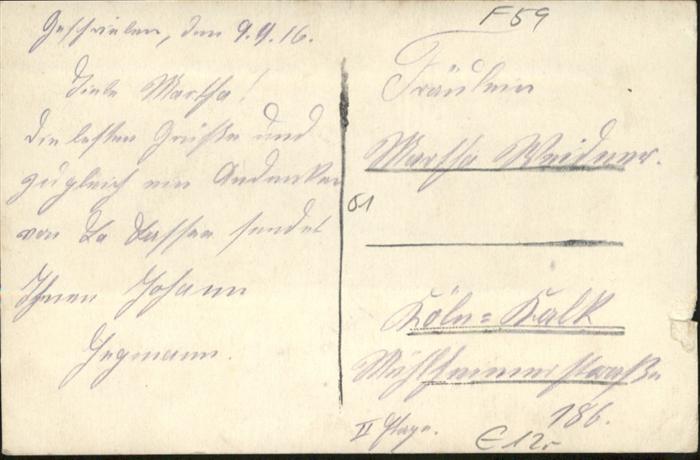 Geschrieben, den 9.9.16.
Liebe Martha!
Die besten Grüße und
zugleich ein Andenken
von La Bassee sendet
Ihnen Johann
Hegmann.
F59
Fräulein
Martha Weidner.
51
Köln=Kalk
Mühlheimerstraße
186.
II Etage.
E12,-